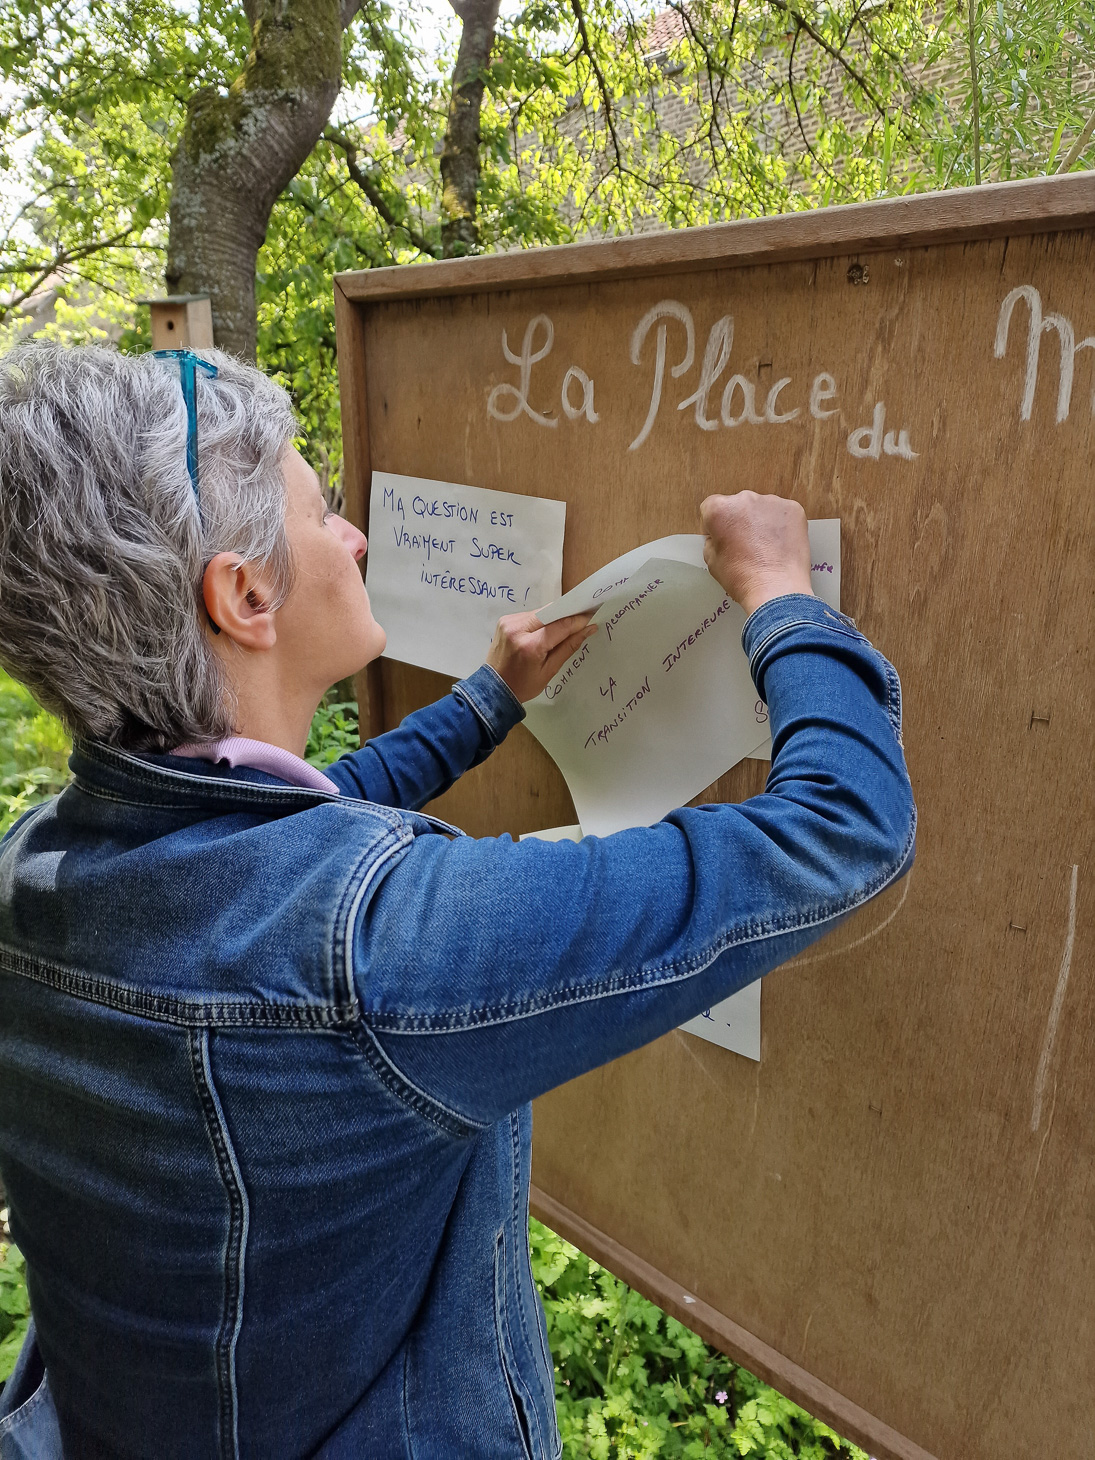 La Place du M
MA QUESTION EST
VRAIMENT SUPER
INTÉRESSANTE !
COMMENT ACCOMPAGNER
LA
TRANSITION INTERIEURE